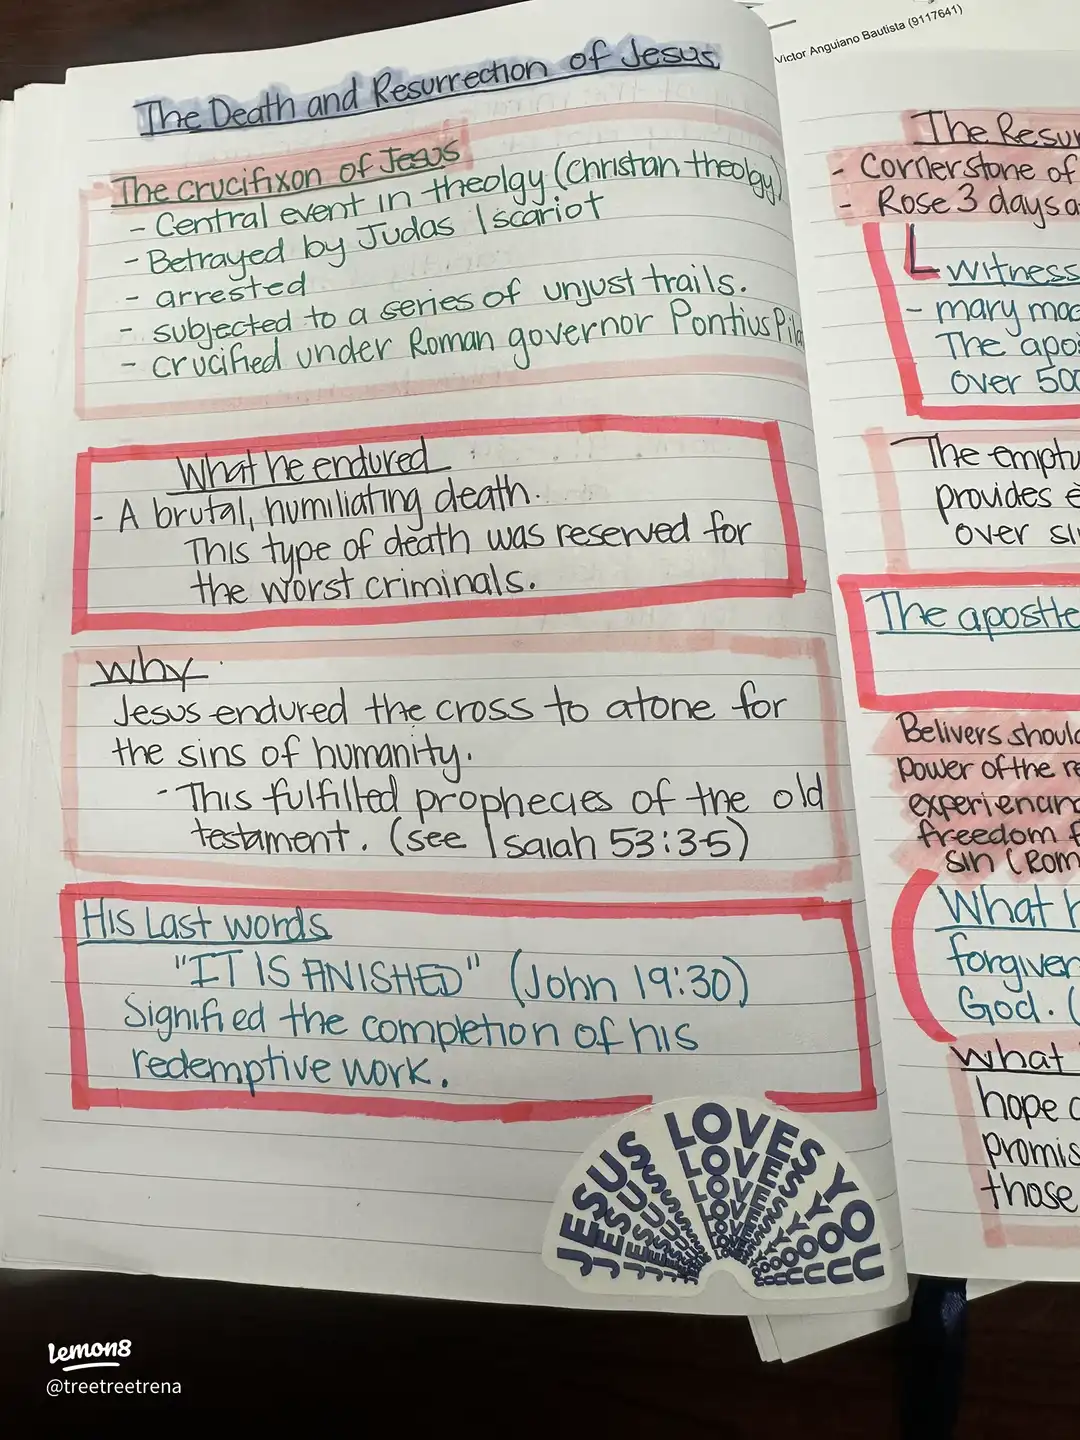 Victor Anguiano Bautista (9117641)
The Death and Resurrection of Jesus
The crucifixon of Jesus
- Central event in theolgy (Christan theolgy)
- Betrayed by Judas Iscariot
- arrested
- subjected to a series of unjust trails.
- crucified under Roman governor Pontius Pila
What he endured
- A brutal, humiliating death.
This type of death was reserved for
the worst criminals.
Why
Jesus endured the cross to atone for
the sins of humanity.
- This fulfilled prophecies of the old
testament. (see Isaiah 53:3-5)
His Last words
"IT IS FINISHED" (John 19:30)
Signified the completion of his
redemptive work.
JESUS LOVES YOU
The Resur
- Cornerstone of
- Rose 3 days a
witness
- mary mag
The apos
over 500
The empty
provides e
over sin
The apostle
Belivers should
power of the re
experiencing
freedom f
sin (Rom
What h
forgiven
God. (
what
hope o
promis
those
lemon8
@treetreetrena